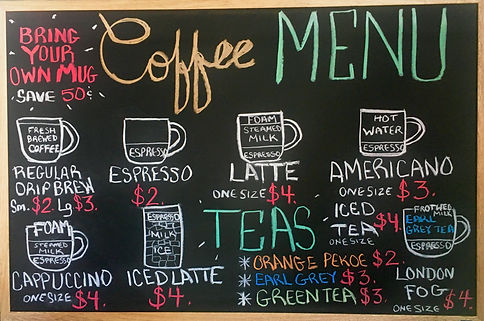 BRING
YOUR
OWN MUG
SAVE 50¢
Coffee MENU
FRESH
BREWED
COFFEE
REGULAR
DRIP BREW
Sm. $2. Lg $3.
ESPRESSO
ESPRESSO
$2.
FOAM
STEAMED
MILK
ESPRESSO
LATTE
ONE SIZE $4.
HOT
WATER
ESPRESSO
AMERICANO
ONE SIZE $3.
FOAM
STEAMED
MILK
ESPRESSO
CAPPUCCINO
ONE SIZE $4.
ESPRESSO
MILK
ICE
ICED LATTE
$4.
TEAS
* ORANGE PEKOE $2.
* EARL GREY $3.
* GREEN TEA $3.
ICED
TEA
ONE SIZE
$4.
FROTHED
MILK
EARL
GREY TEA
ESPRESSO
LONDON
FOG
ONE SIZE $4.